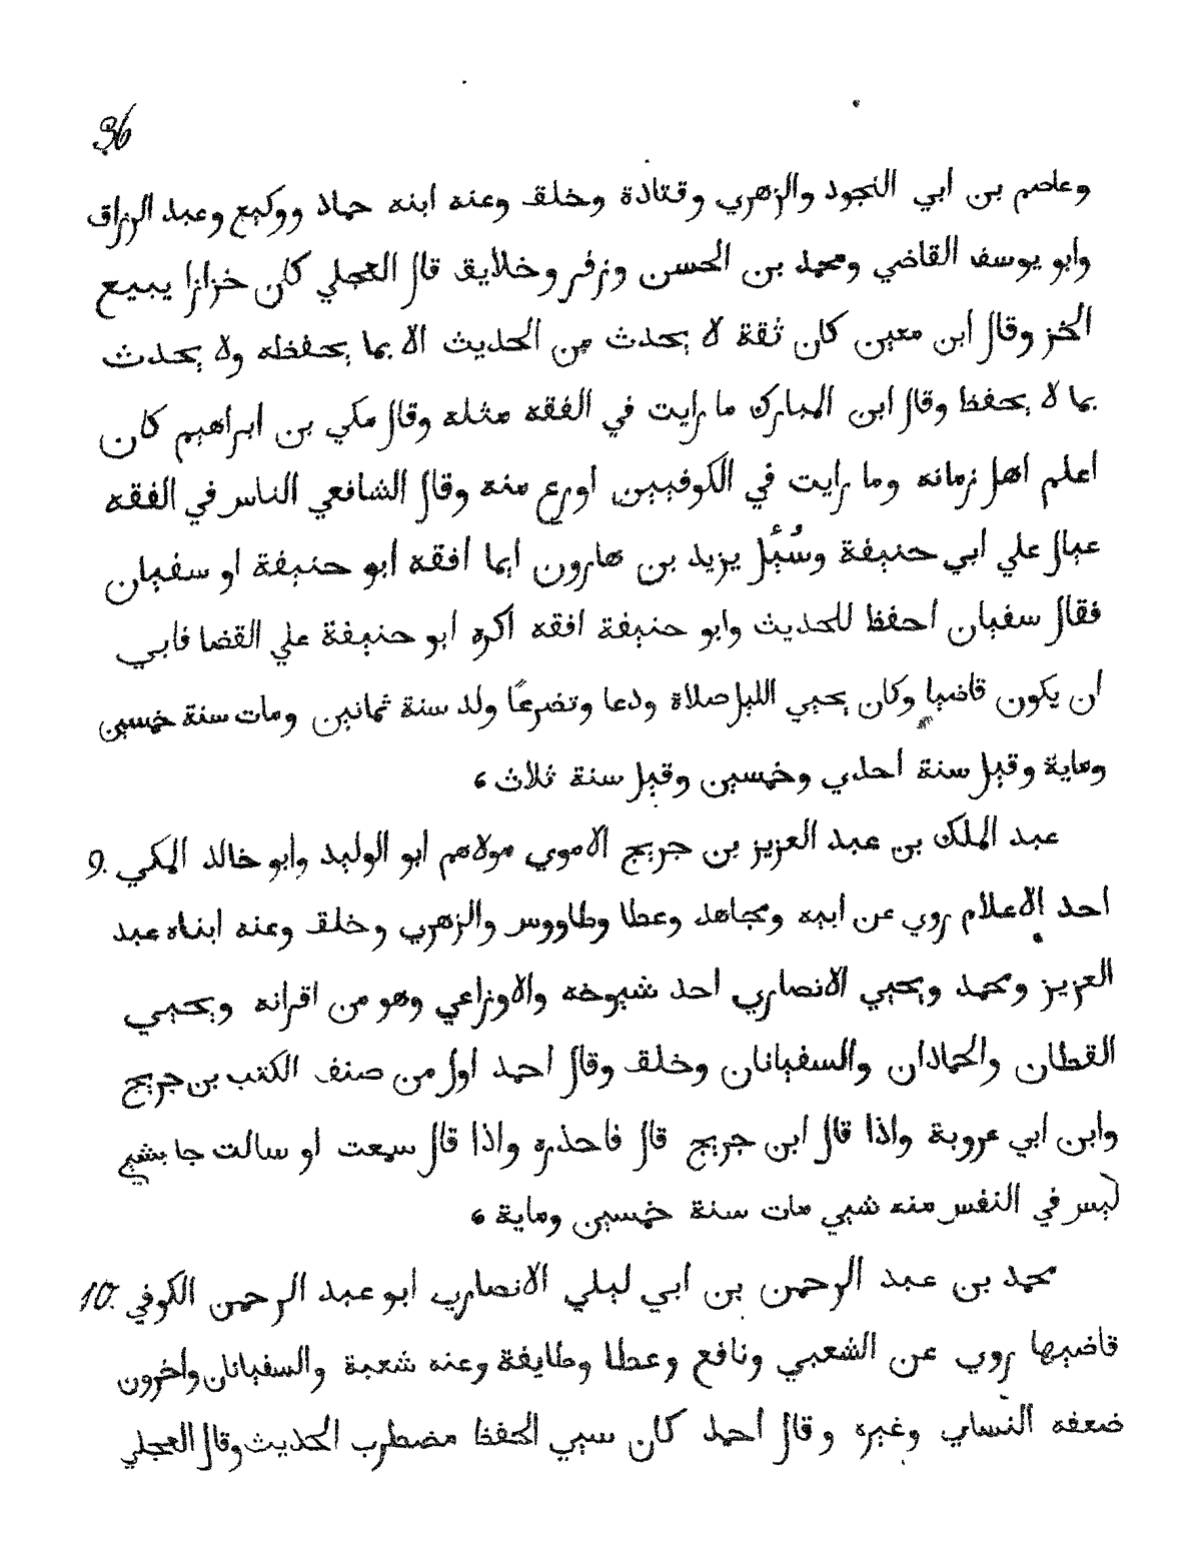 36
وعاصم بن ابي النجود والزهري وقتادة وخلق وعنه ابنه حماد ووكيع وعبد الرزاق
وابو يوسف القاضي ومحمد بن الحسن وزفر وخلايق قال العجلي كان خزازا يبيع
الخز وقال ابن معين كان ثقة لا يحدث من الحديث الا بما يحفظه ولا يحدث
بما لا يحفظ وقال ابن المبارك ما رايت في الفقه مثله وقال مكي بن ابراهيم كان
اعلم اهل زمانه وما رايت في الكوفيين اورع منه وقال الشافعي الناس في الفقه
عيال علي ابي حنيفة وسُئِل يزيد بن هارون ايما افقه ابو حنيفة او سفيان
فقال سفيان احفظ للحديث وابو حنيفة افقه اكره ابو حنيفة علي القضا فابي
ان يكون قاضيا وكان يحيي الليل صلاة ودعا وتضرعًا ولد سنة ثمانين ومات سنة خمسين
وماية وقيل سنة احدي وخمسين وقيل سنة ثلاث ٥
9. عبد الملك بن عبد العزيز بن جريج الاموي مولاهم ابو الوليد وابو خالد المكي
احد الاعلام روي عن ابيه ومجاهد وعطا وطاووس والزهري وخلق وعنه ابناه عبد
العزيز ومحمد ويحيي الانصاري احد شيوخه والاوزاعي وهو من اقرانه ويحيي
القطان والحمادان والسفيانان وخلق وقال احمد اول من صنف الكتب بن جريج
وابن ابي عروبة واذا قال ابن جريج قال فاحذره واذا قال سمعت او سالت جا بشي
ليس في النفس منه شيي مات سنة خمسين وماية ٥
10. محمد بن عبد الرحمن بن ابي ليلي الانصاري ابو عبد الرحمن الكوفي
قاضيها روي عن الشعبي ونافع وعطا وطايفة وعنه شعبة والسفيانان واخرون
ضعفه النساي وغيره وقال احمد كان سيي الحفظ مضطرب الحديث وقال العجلي